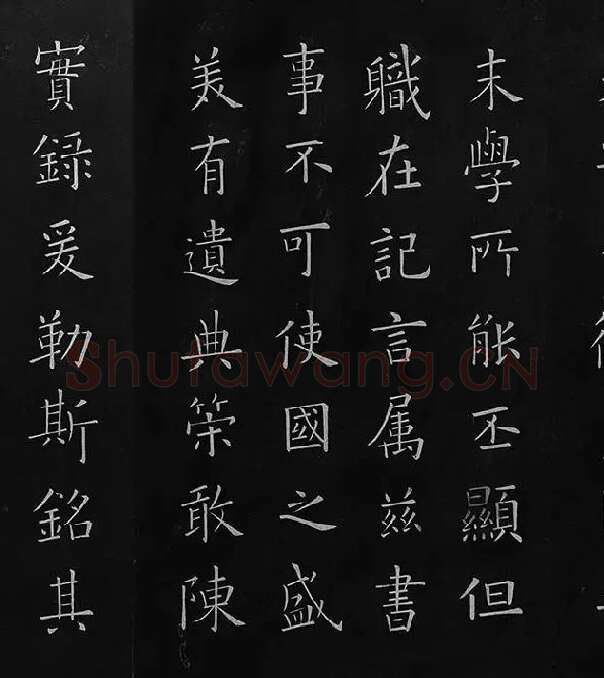 末學所能丕顯但
職在記言属兹書
事不可使國之盛
美有遺典筞敢陳
實録爰勒斯銘其
Shufawang.CN